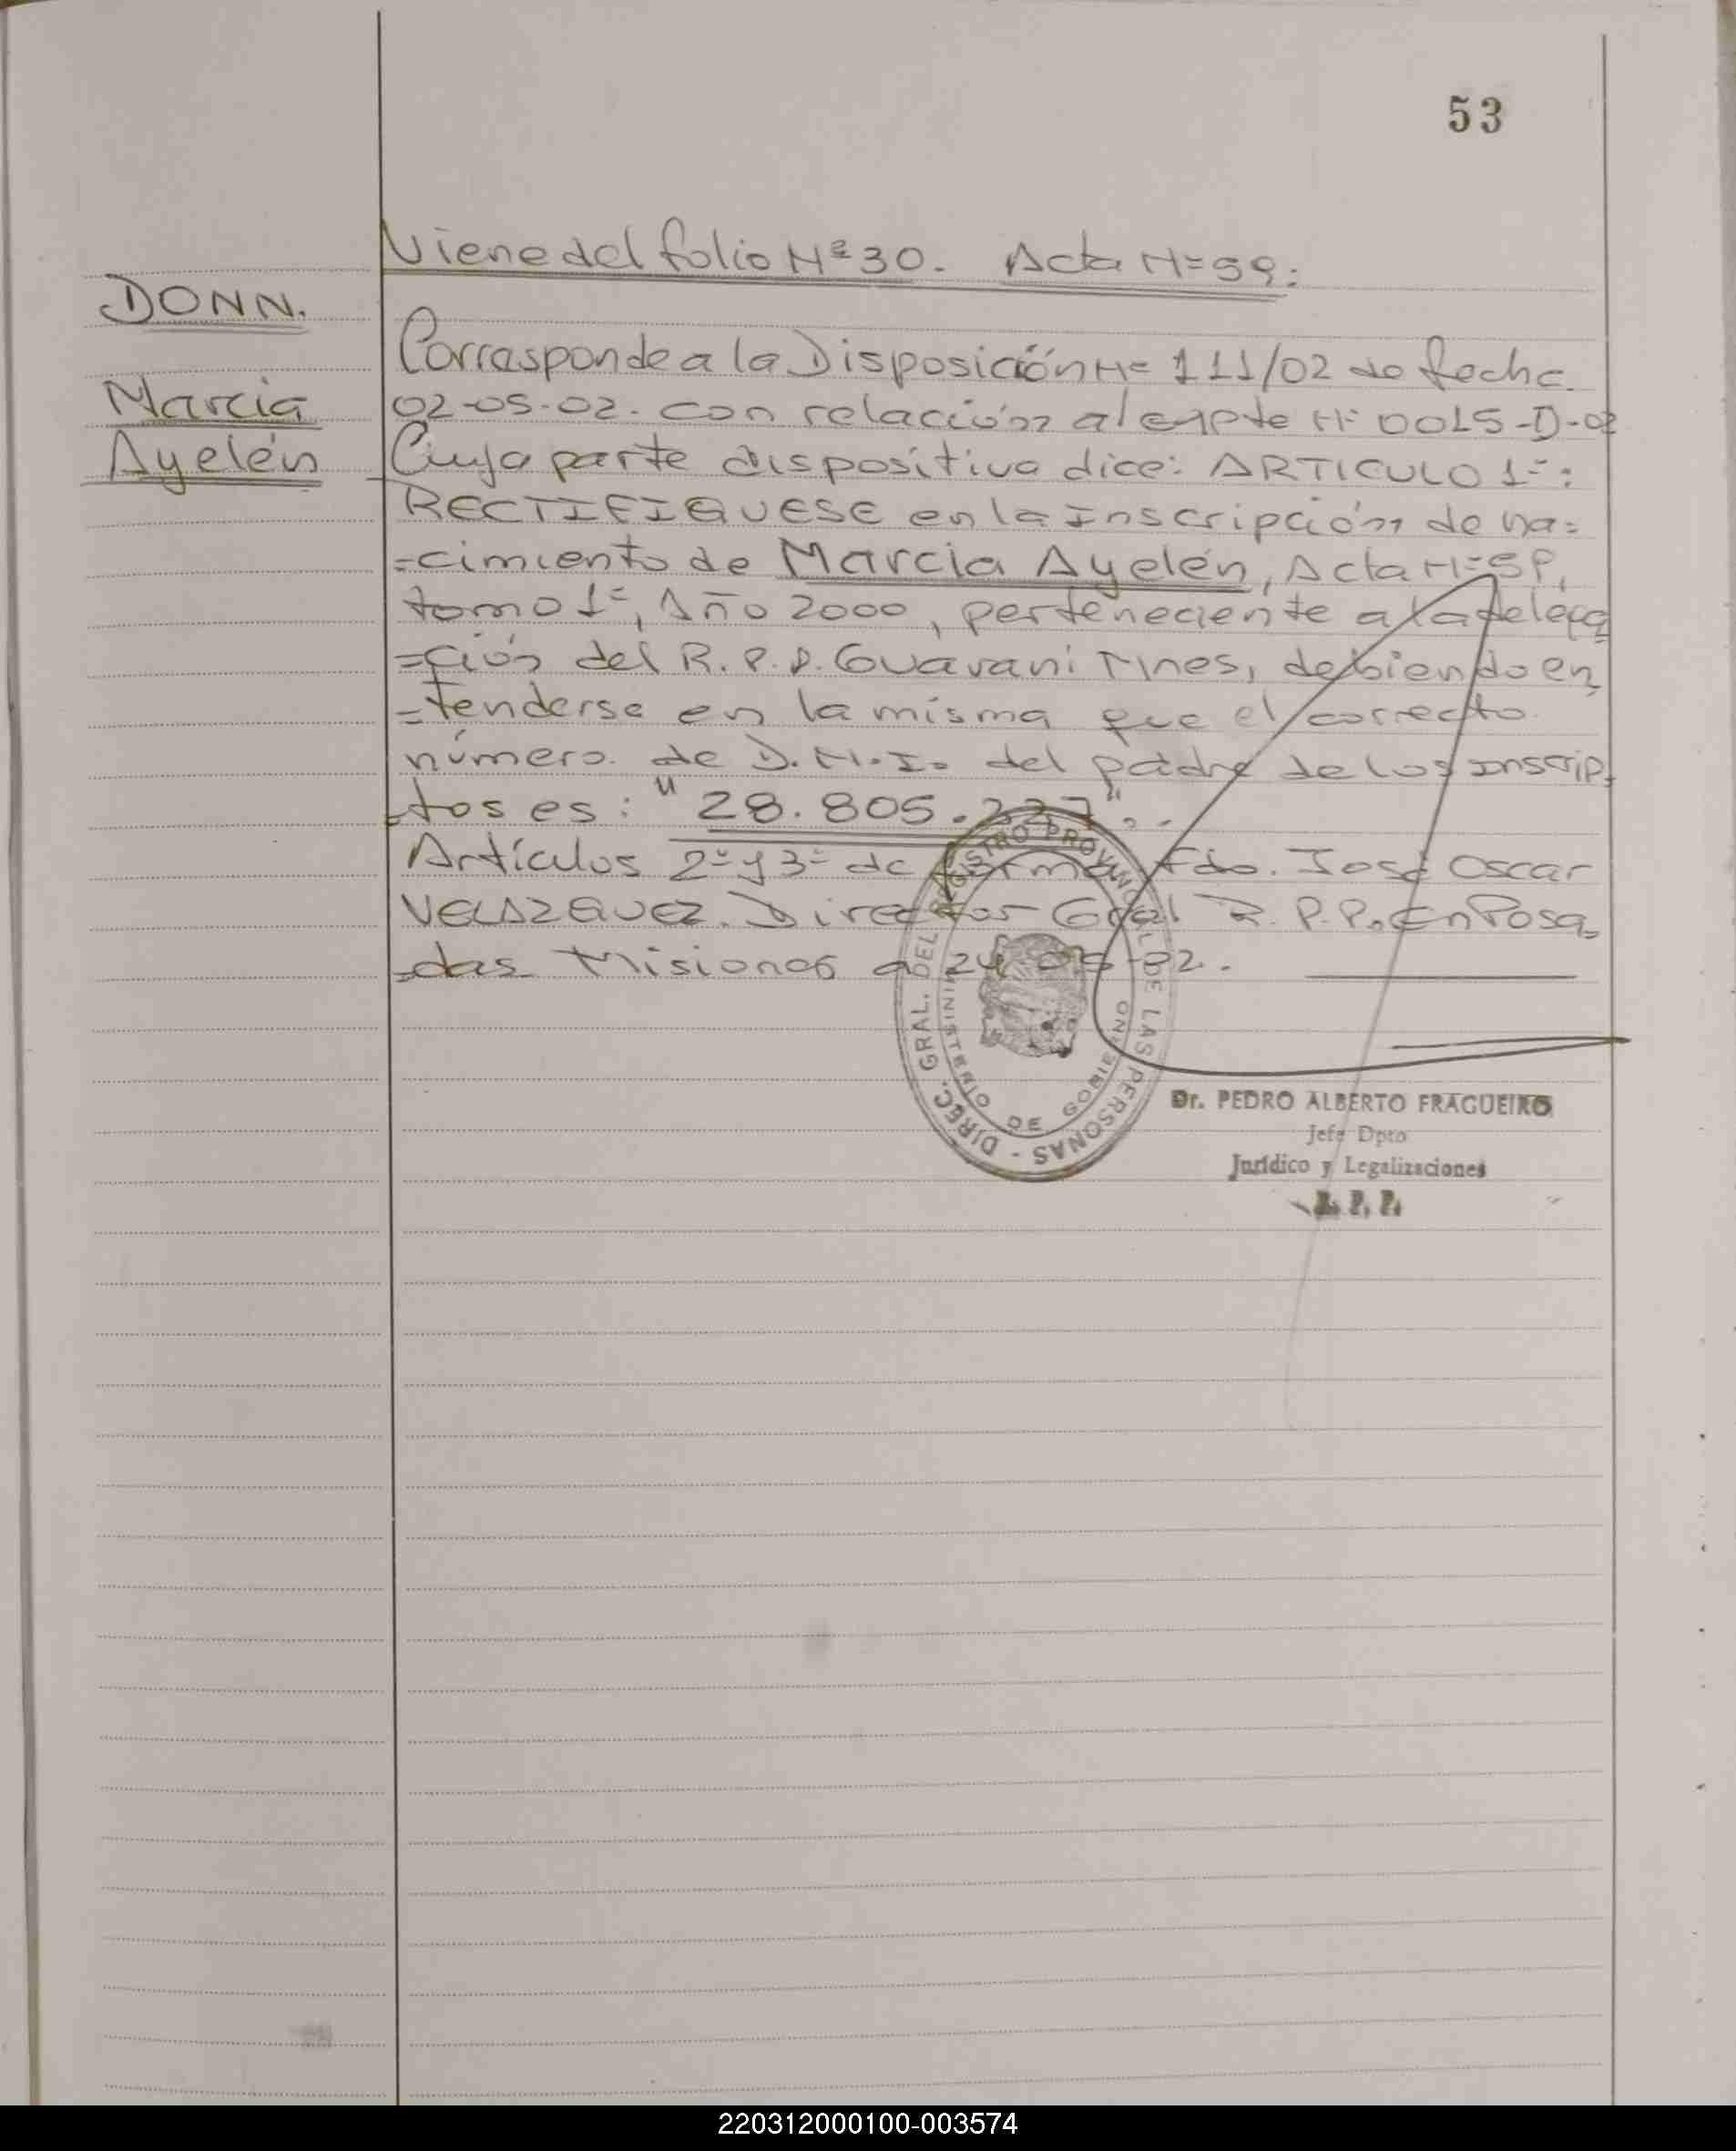 53
Viene del folio Nº 30. Acta Nº 59:
DONN.
Marcia
Ayelén
Corresponde a la Disposición Nº 111/02 de fecha
02-05-02. con relación al expte Nº 0015-D-02
Cuya parte dispositiva dice: ARTICULO 1º:
RECTIFIQUESE en la Inscripción de na=
=cimiento de Marcia Ayelén, Acta Nº
tomo 1º, Año 2000, perteneciente a la delega
=ción del R.P.P. Guarani Mnes, debiendo en
=tenderse en la misma que el correcto
número de D.N.I. del padre de los inscrip
tos es: "28.805.
Artículos 2º y 3º de forma Fdo. José Oscar
VELAZQUEZ. Director Gral R.P.P. En Posa
das Misiones a 24 05 02.
DIREC. GRAL. DEL REGISTRO PROVINCIAL DE LAS PERSONAS -
MINISTERIO DE GOBIERNO
Dr. PEDRO ALBERTO FRAGUEIRO
Jefe Dpto
Jurídico y Legalizaciones
R. P. P.
220312000100-003574